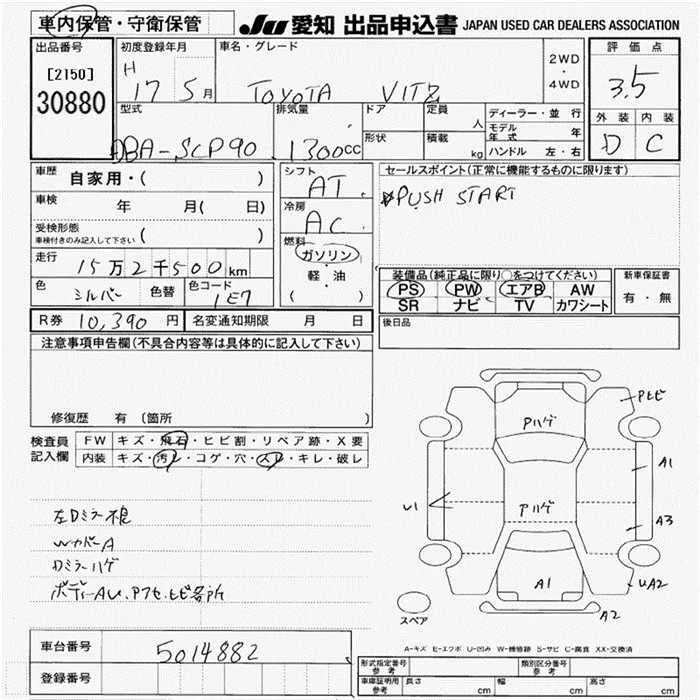 車内保管・守衛保管 JU 愛知 出品申込書 JAPAN USED CAR DEALERS ASSOCIATION
出品番号
[2150]
30880
初度登録年月
H 17 5月
車名・グレード
TOYOTA VITZ
2WD
・
4WD
評価点
3.5
外装 内装
D C
型式
DBA-SCP90
排気量
1300cc
ドア
形状
定員
人
積載
kg
ディーラー・並行
モデル年式 年
ハンドル 左・右
車歴
自家用・( )
車検
年 月( 日)
受検形態
車検付きのみ記入して下さい ( )
走行
15万2千500km
色
シルバー
色替
色コード
1E7
シフト
AT
冷房
AC
燃料
ガソリン
・
軽・油
( )
セールスポイント(正常に機能するものに限ります)
PUSH START
装備品(純正品に限り○をつけてください)
PS PW エアB AW
SR ナビ TV カワシート
新車保証書
有・無
R券 10,390円
名変通知期限 月 日
後日品
注意事項申告欄(不具合内容等は具体的に記入して下さい)
修復歴 有 (箇所 )
検査員記入欄
FW キズ・飛石・ヒビ割・リペア跡・X要
内装 キズ・汚レ・コゲ・穴・スレ・キレ・破レ
左Dミラー不良
WカバーA
Dミラーハゲ
ボディーAU、Pアセ、ヒビ各所
Pヒビ
Pハゲ
A1
U1
Pハゲ
A3
A1
UA2
A2
スペア
A-キズ E-エクボ U-凹み W-補修跡 S-サビ C-腐食 XX-交換済
車台番号
5014882
登録番号
形式指定番号
参考
類別区分番号
参考
車庫証明用
参考
長さ cm
幅 cm
高さ cm